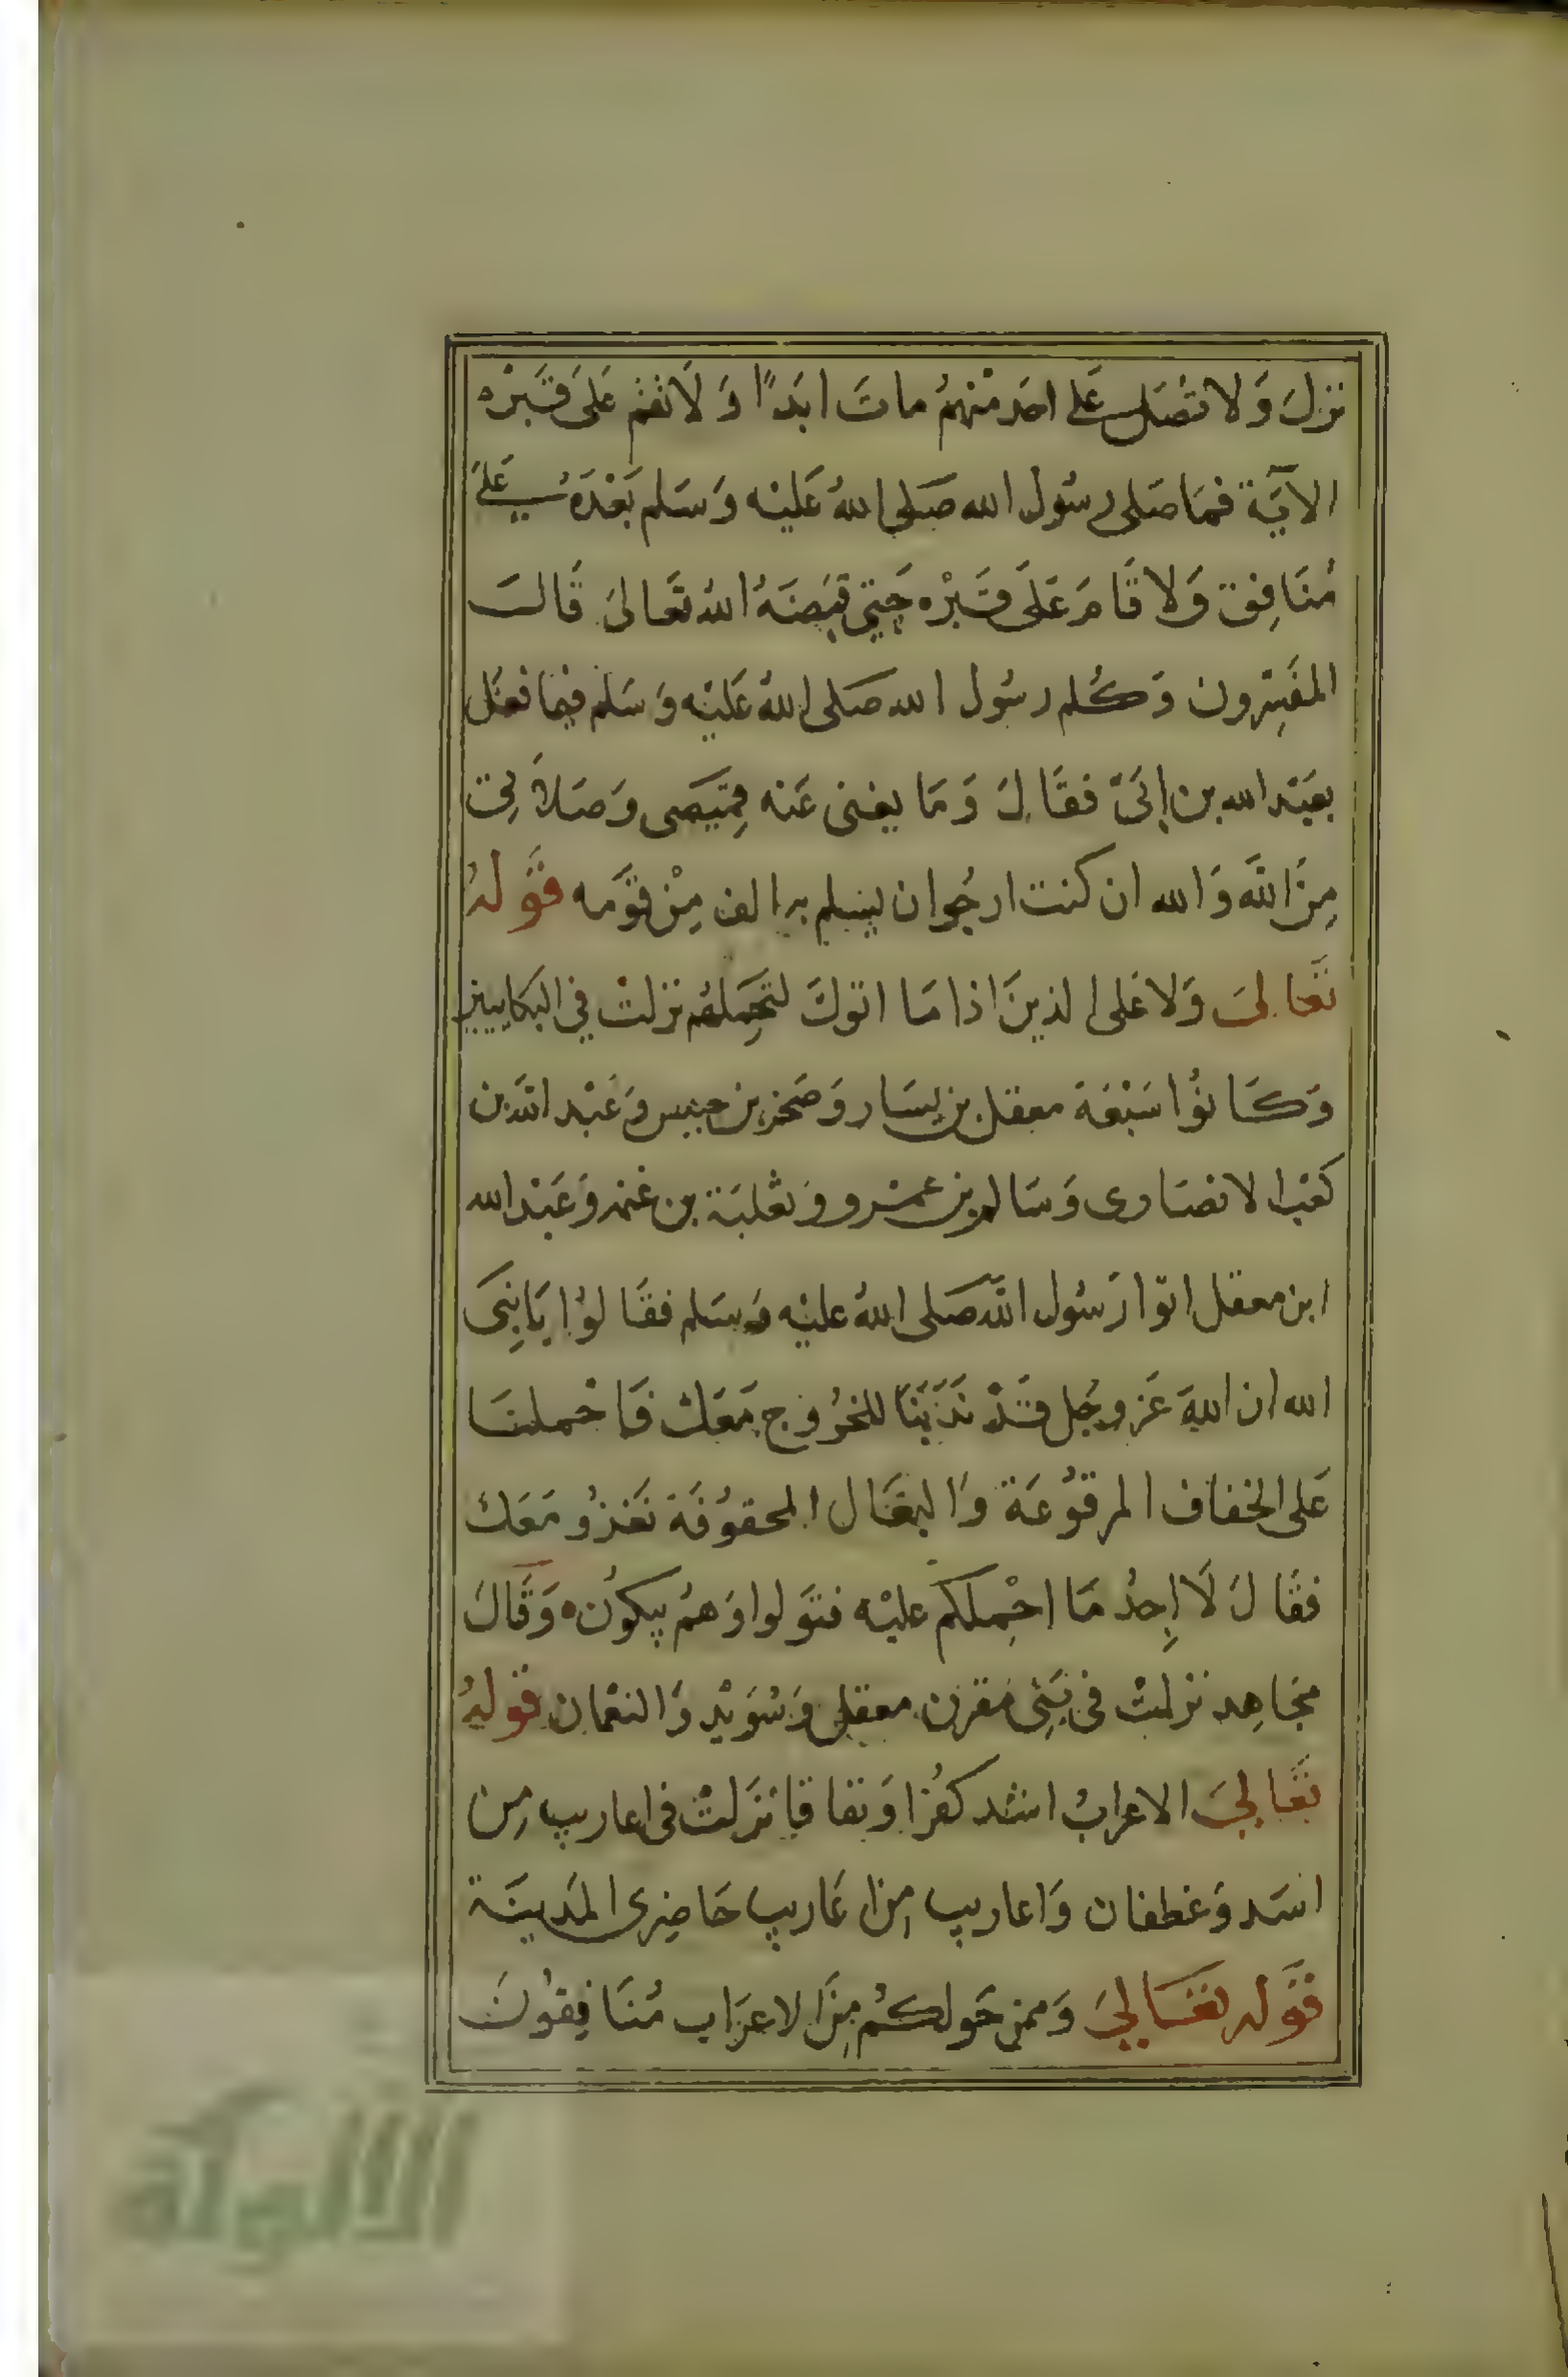 نزلَ وَلا تُصَلِ عَلى احَد مْنهمُ ماتَ ابَدًا وَ لَا تقم عَلىَ قَبَرْه
الآيَة فمَا صَلى رسُول الله صَلى اللهُ عَليْه وَسَلم بَعْدَهُ عَلىَ
مُنَافِق وَلا قَامَ عَلىَ قَبَرْه حَتي قبَضَهُ اللهُ تعَالىَ قَالَ
المفَسِرون وَكُلم رسُول الله صَلى اللهُ عَليْه وَسَلم فيما فعَل
بعَبْد الله بن ابَىّ فقَالَ وَمَا يغنى عَنه قميَصى وَصَلاَتي
مِنَ اللهَ وَالله ان كنت ارجُو ان يسَلم به الف مِنْ قوَمه قوَلهُ
تعَالىَ وَلا عَلى الذينَ اذا مَا اتوكَ لتحَملهُم نزلتْ في البكايين
وَكَانوُا سَبْعَة معقل بن يسَار وَصَخر بن حبيس وَعَبْد الله بن
كعَب الانصَاوى وَسَالم بن عمْرو وَثعلبَة بن غنمه وَعَبْد الله
ابن معقل اتوا رَسُول الله صَلى اللهُ عليْه وَسَلم فقَالوُا يَا نِبىَ
الله ان اللهَ عَز وجُل قَدْ ندَبَنَا للخرُوج مَعَكْ فَاحْملنَا
عَلى الخفاف المرقوُعَة وَالبغَال المحقوُفَة نَغزوُ مَعَكْ
فقَالَ لَا اجِدُ مَا احْملكم عليْه فتوَلوا وَهمُ يبكوُن وَقَالَ
مجَاهِد نزلتْ فى بَنِى مَقرن معقل وَسُوَيْد وَالنعْمان قولهُ
تعَاليَ الاعرابُ اشد كفُرا وَنفاقا نزَلتْ فى اعاريب مِن
اسَد وَغطفان وَاعاريب مِن اعَاريب حَاضِرى المَدينَة
قوَله تعَاليَ وَممن حَولكمُ مِنَ الاعرَاب مُنَافِقوُنَ
الألوكة